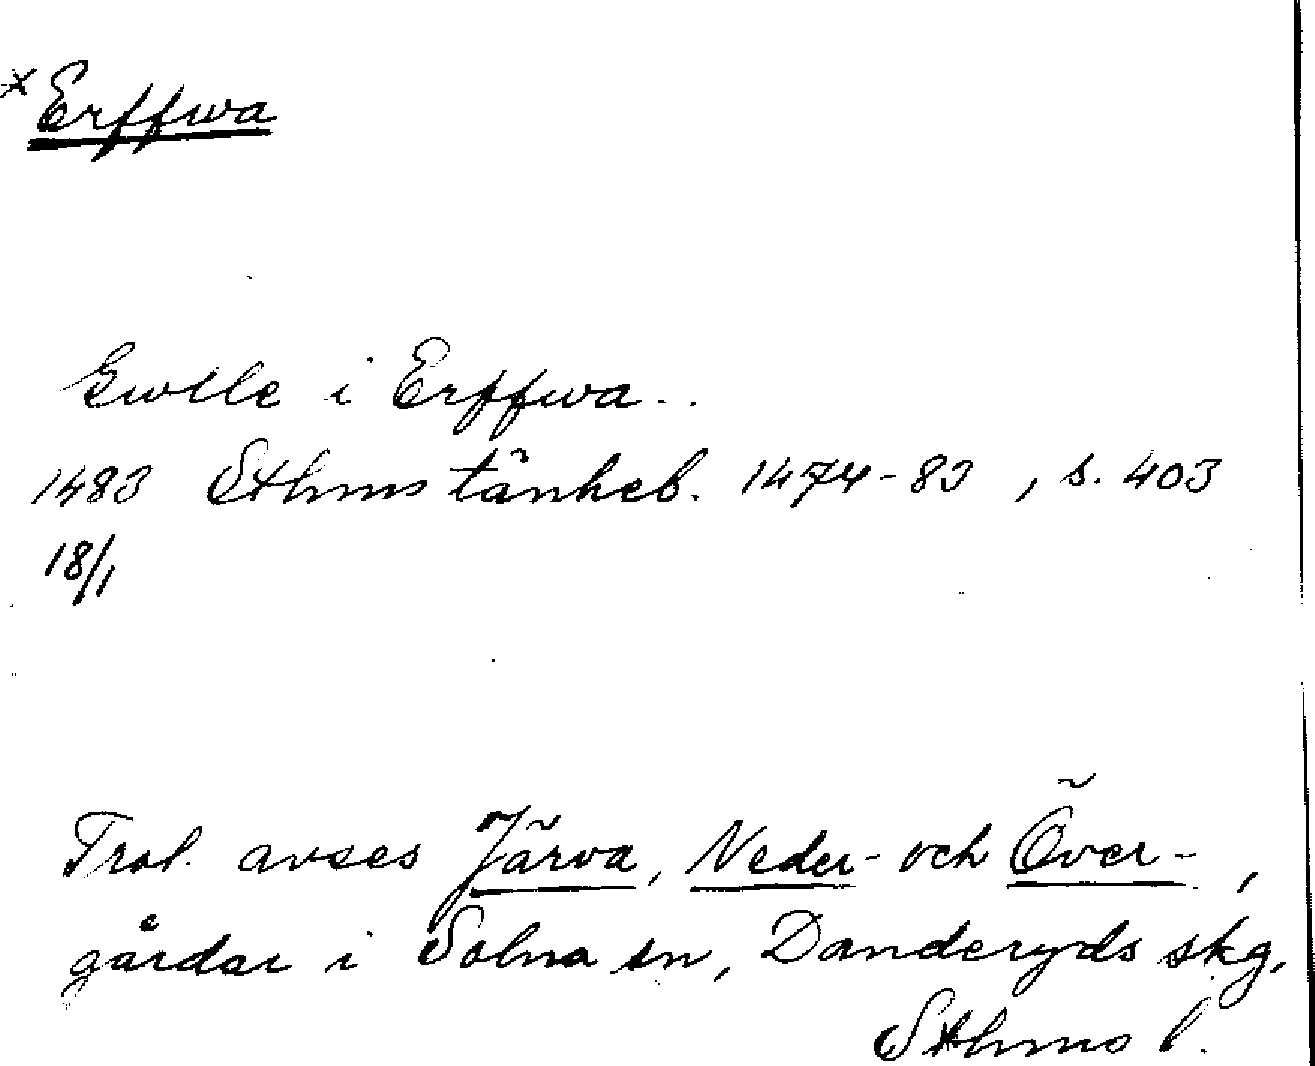 × Erffwa
Gulle i Erffwa..
1483 Sthms tänkeb. 1474-83, s. 403
18/1
Trol. avses Järva, Neder- och Över-,
gårdar i Solna sn, Danderyds skg,
Sthms l.